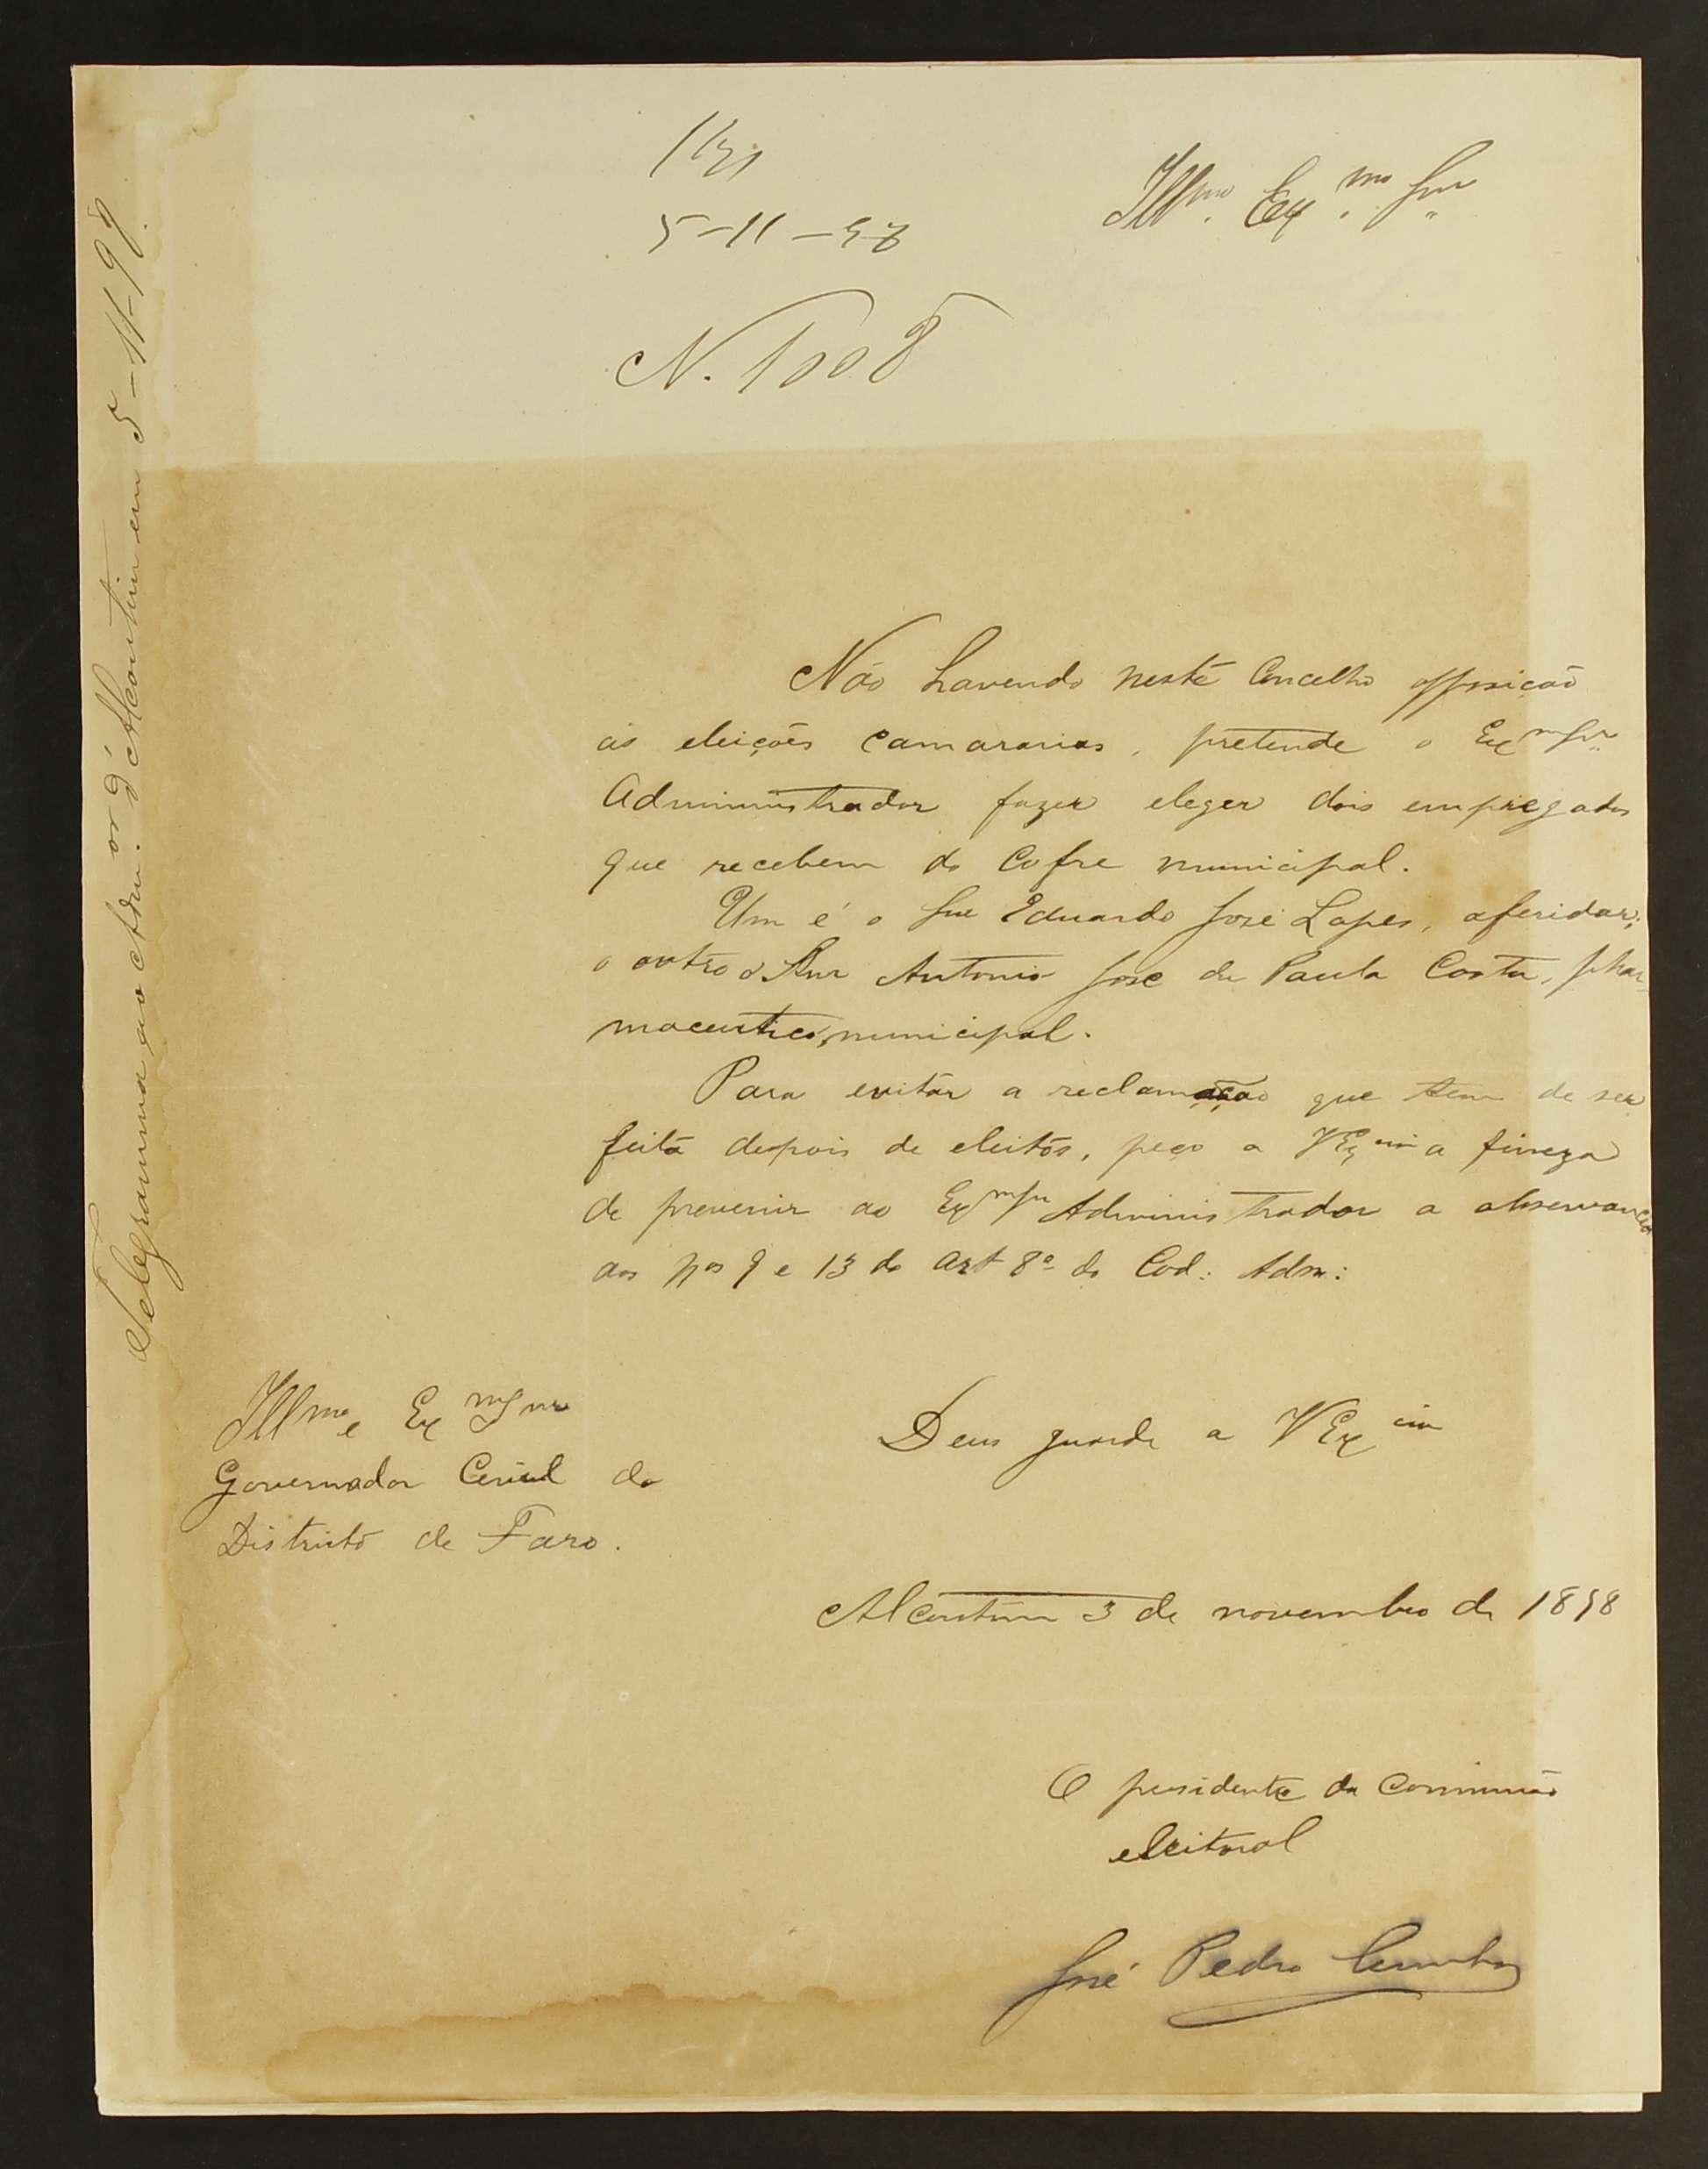 5-11-98
Ill.mo Ex.mo Snr
N. 1008
Não havendo neste Concelho opposição
ás eleições camararias, pretende o Exmo Snr
Administrador fazer eleger dois empregados
que recebem do Cofre municipal.
Um é o Snr Eduardo José Lopes, aferidor;
o outro o Snr Antonio José de Paula Costa, phar-
maceutico, municipal.
Para evitar a reclamação que tem de ser
feita depois de eleitos, peço a V Excia a fineza
de prevenir ao Exmo Snr Administrador a observancia
aos nos 9 e 13 do art 8º do Cod: Adm:
Deus guarde a V Excia
Illmo e Exmo Snr
Governador Civil do
Districto de Faro.
Alcoutim 3 de novembro de 1898
O presidente da Commissão
eleitoral
José Pedro Cunha
Telegramma ao Adm.or d'Alcoutim em 5-11-98.